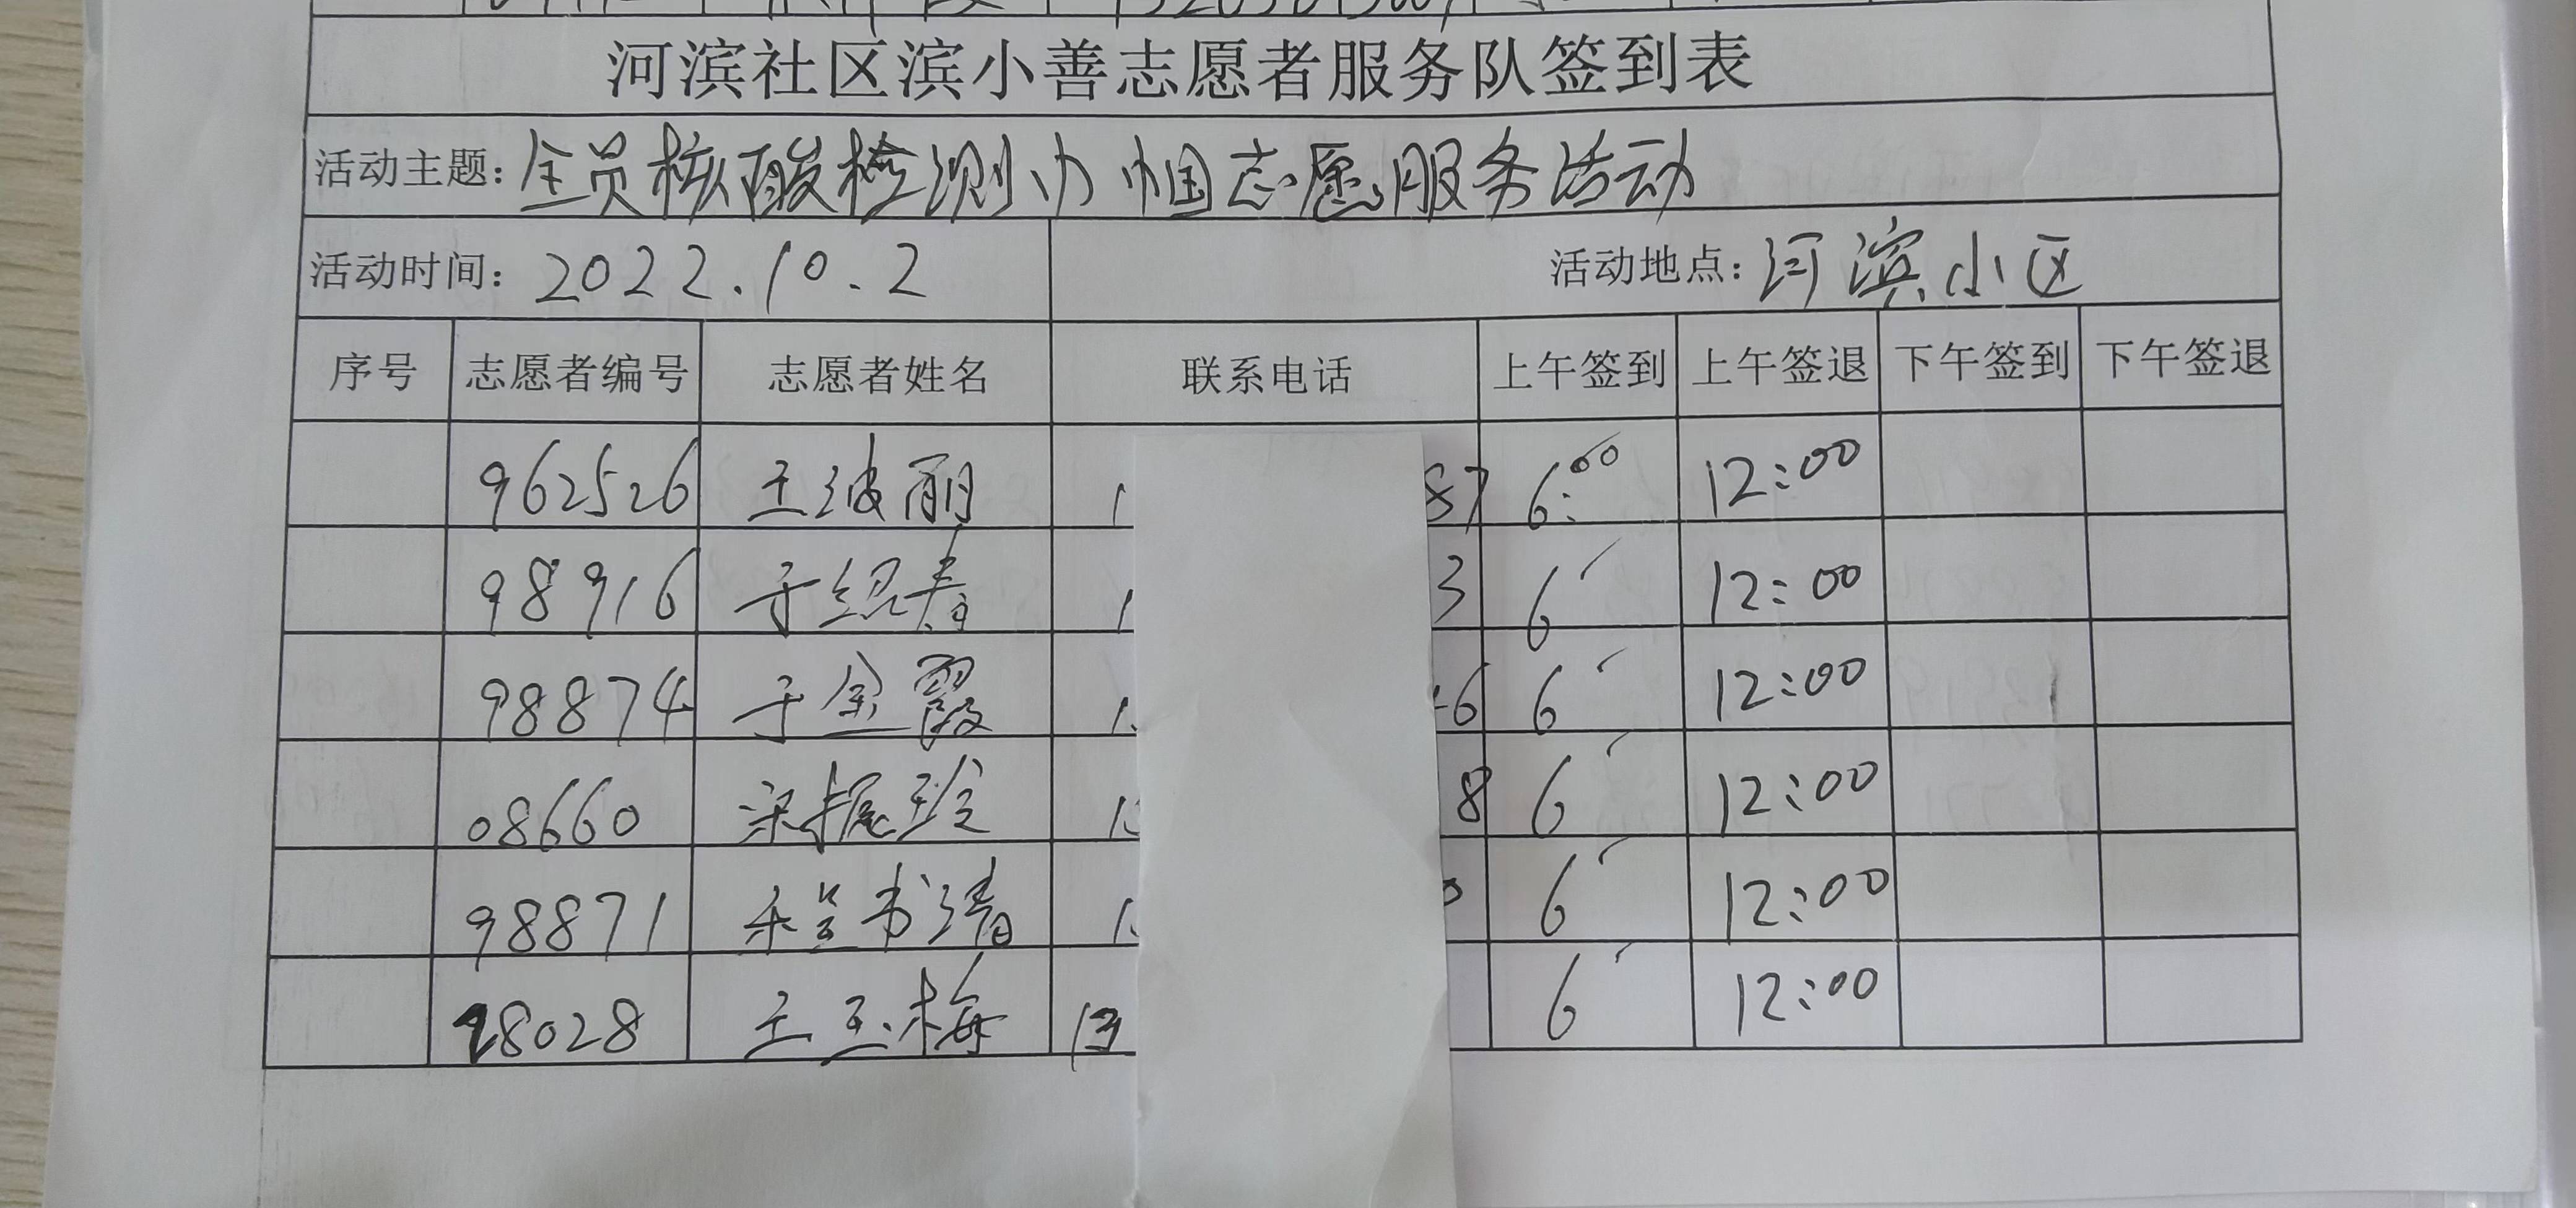 河滨社区滨小善志愿者服务队签到表
活动主题：全员核酸检测巾帼志愿服务活动
活动时间：2022.10.2 活动地点：河滨小区
序号 志愿者编号 志愿者姓名 联系电话 上午签到 上午签退 下午签到 下午签退
962526 王波丽 1 87 6:00 12:00
98916 于绍春 1 3 6 12:00
98874 于金霞 1 6 6 12:00
08660 梁振玲 1 8 6 12:00
98871 1 6 12:00
98028 王玉梅 13 6 12:00